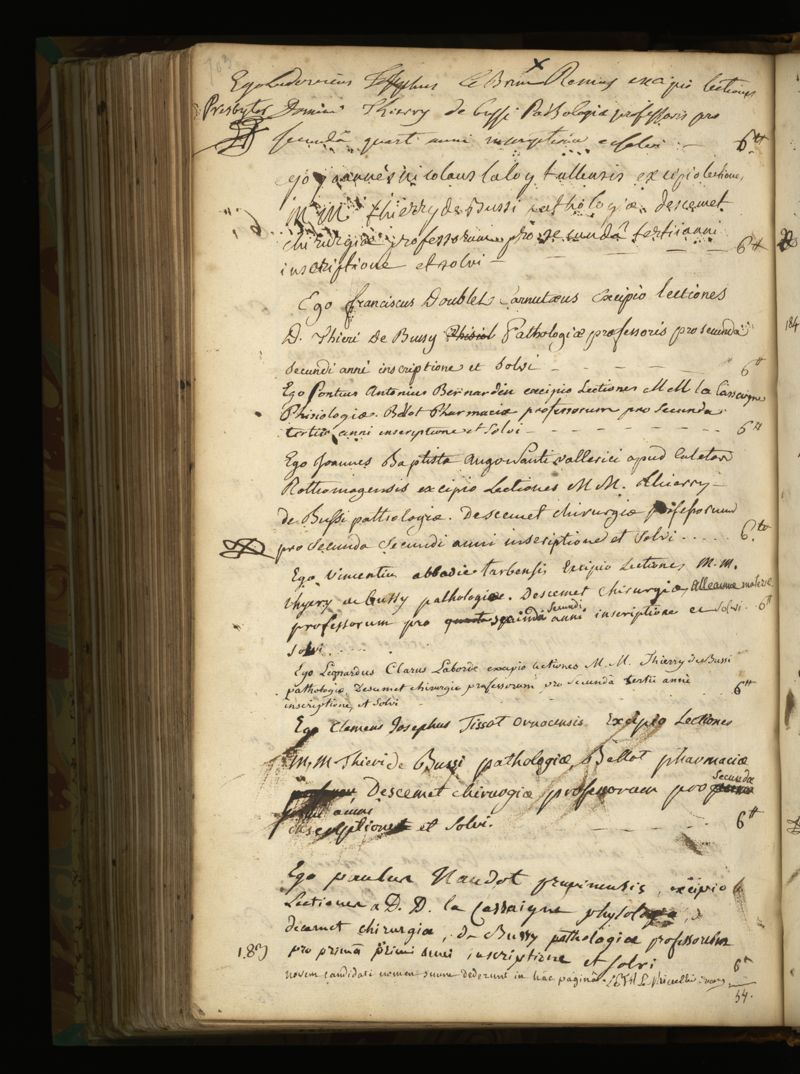 103
x
Ego Ludovicus Josephus Le Brun Remus excipio lectiones
Presbyter Domini Thierry de bussi Pathologiæ professoris pro
secundâ quarti anni inscriptione et solvi - 6tt
ego joannés nicolaus laloy tullensis excipio lectiones
M.M. thierry de Bussi pathologiæ descemet
chirurgiæ professorum pro secundâ tertii anni
inscriptione et solvi - 6tt
Ego franciscus Doublet Carnutæus excipio lectiones
D. Thieri De Bussy Phisiol Pathologiæ professoris pro secunda
secundi anni inscriptione et solvi - 6tt
Ego Pontius Antonius Bernardin excipio Lectiones M M la Cassaigne
Phisiologiæ. Bellot Pharmaciæ professorum pro secunda
tertii anni inscriptione et solvi - 6tt
Ego Joannes Baptista Ango Sancti vallerici apud Caletas
Rothomagensis excipio Lectiones M M. thierry
de Bussi pathologiæ. Descemet chirurgiæ professorum
pro secunda secundi anni inscriptione et solvi ..... 6tt
Ego Vincentius abbadie tarbensis Excipio Lectiones M.M.
thyery de bussy pathologiæ. Descemet chirurgiæ, alleaume materiæ
professorum pro quarta secunda secundi anni inscriptione et solvi. 6tt
solvi.....
Ego Leonardus Clarus Laborde excipio lectiones M.M. Thierry de Bussi
pathologiæ Descemet chirurgiæ professorum pro secundâ tertii anni
inscriptione, et solvi 6tt
Ego Clemens Josephus Tissot ornacensis Excipio Lectiones
M,M Thieri de Bussi pathologiæ, Bellot pharmaciæ
Descemet chirurgiæ professorum pro secunda
anni
inscriptione et solvi. 6tt
Ego paulus Naudot pruvinensis, excipio
Lectiones a D. D. la Cassaigne physiologiæ,
decemet chirurgiæ, de Bussy pathologiæ professoribus
189 pro primâ primi anni inscriptione et solvi 6tt
novem candidati nomen suum dederunt in hac paginâ.
54.
184